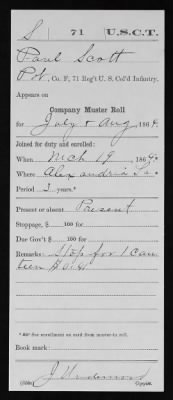 S 71 U.S.C.T.
Paul Scott
Pvt, Co. F, 71 Reg't U. S. Col'd Infantry.
Appears on
Company Muster Roll
for July & Aug, 1864.
Joined for duty and enrolled:
When Mch 19, 1864.
Where Alexandria La
Period 3 years.*
Present or absent Present
Stoppage, $ 100 for
Due Gov't $ 100 for
Remarks: Stop for 1 can
teen $0.41
*See enrollment on card from muster-in roll.
Book mark:
(358c) Copyist.